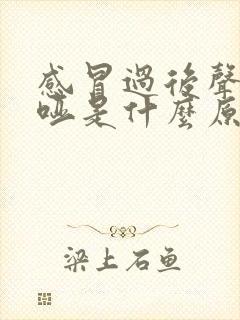 感冒過後聲
啞是什麼原
梁上石鱼